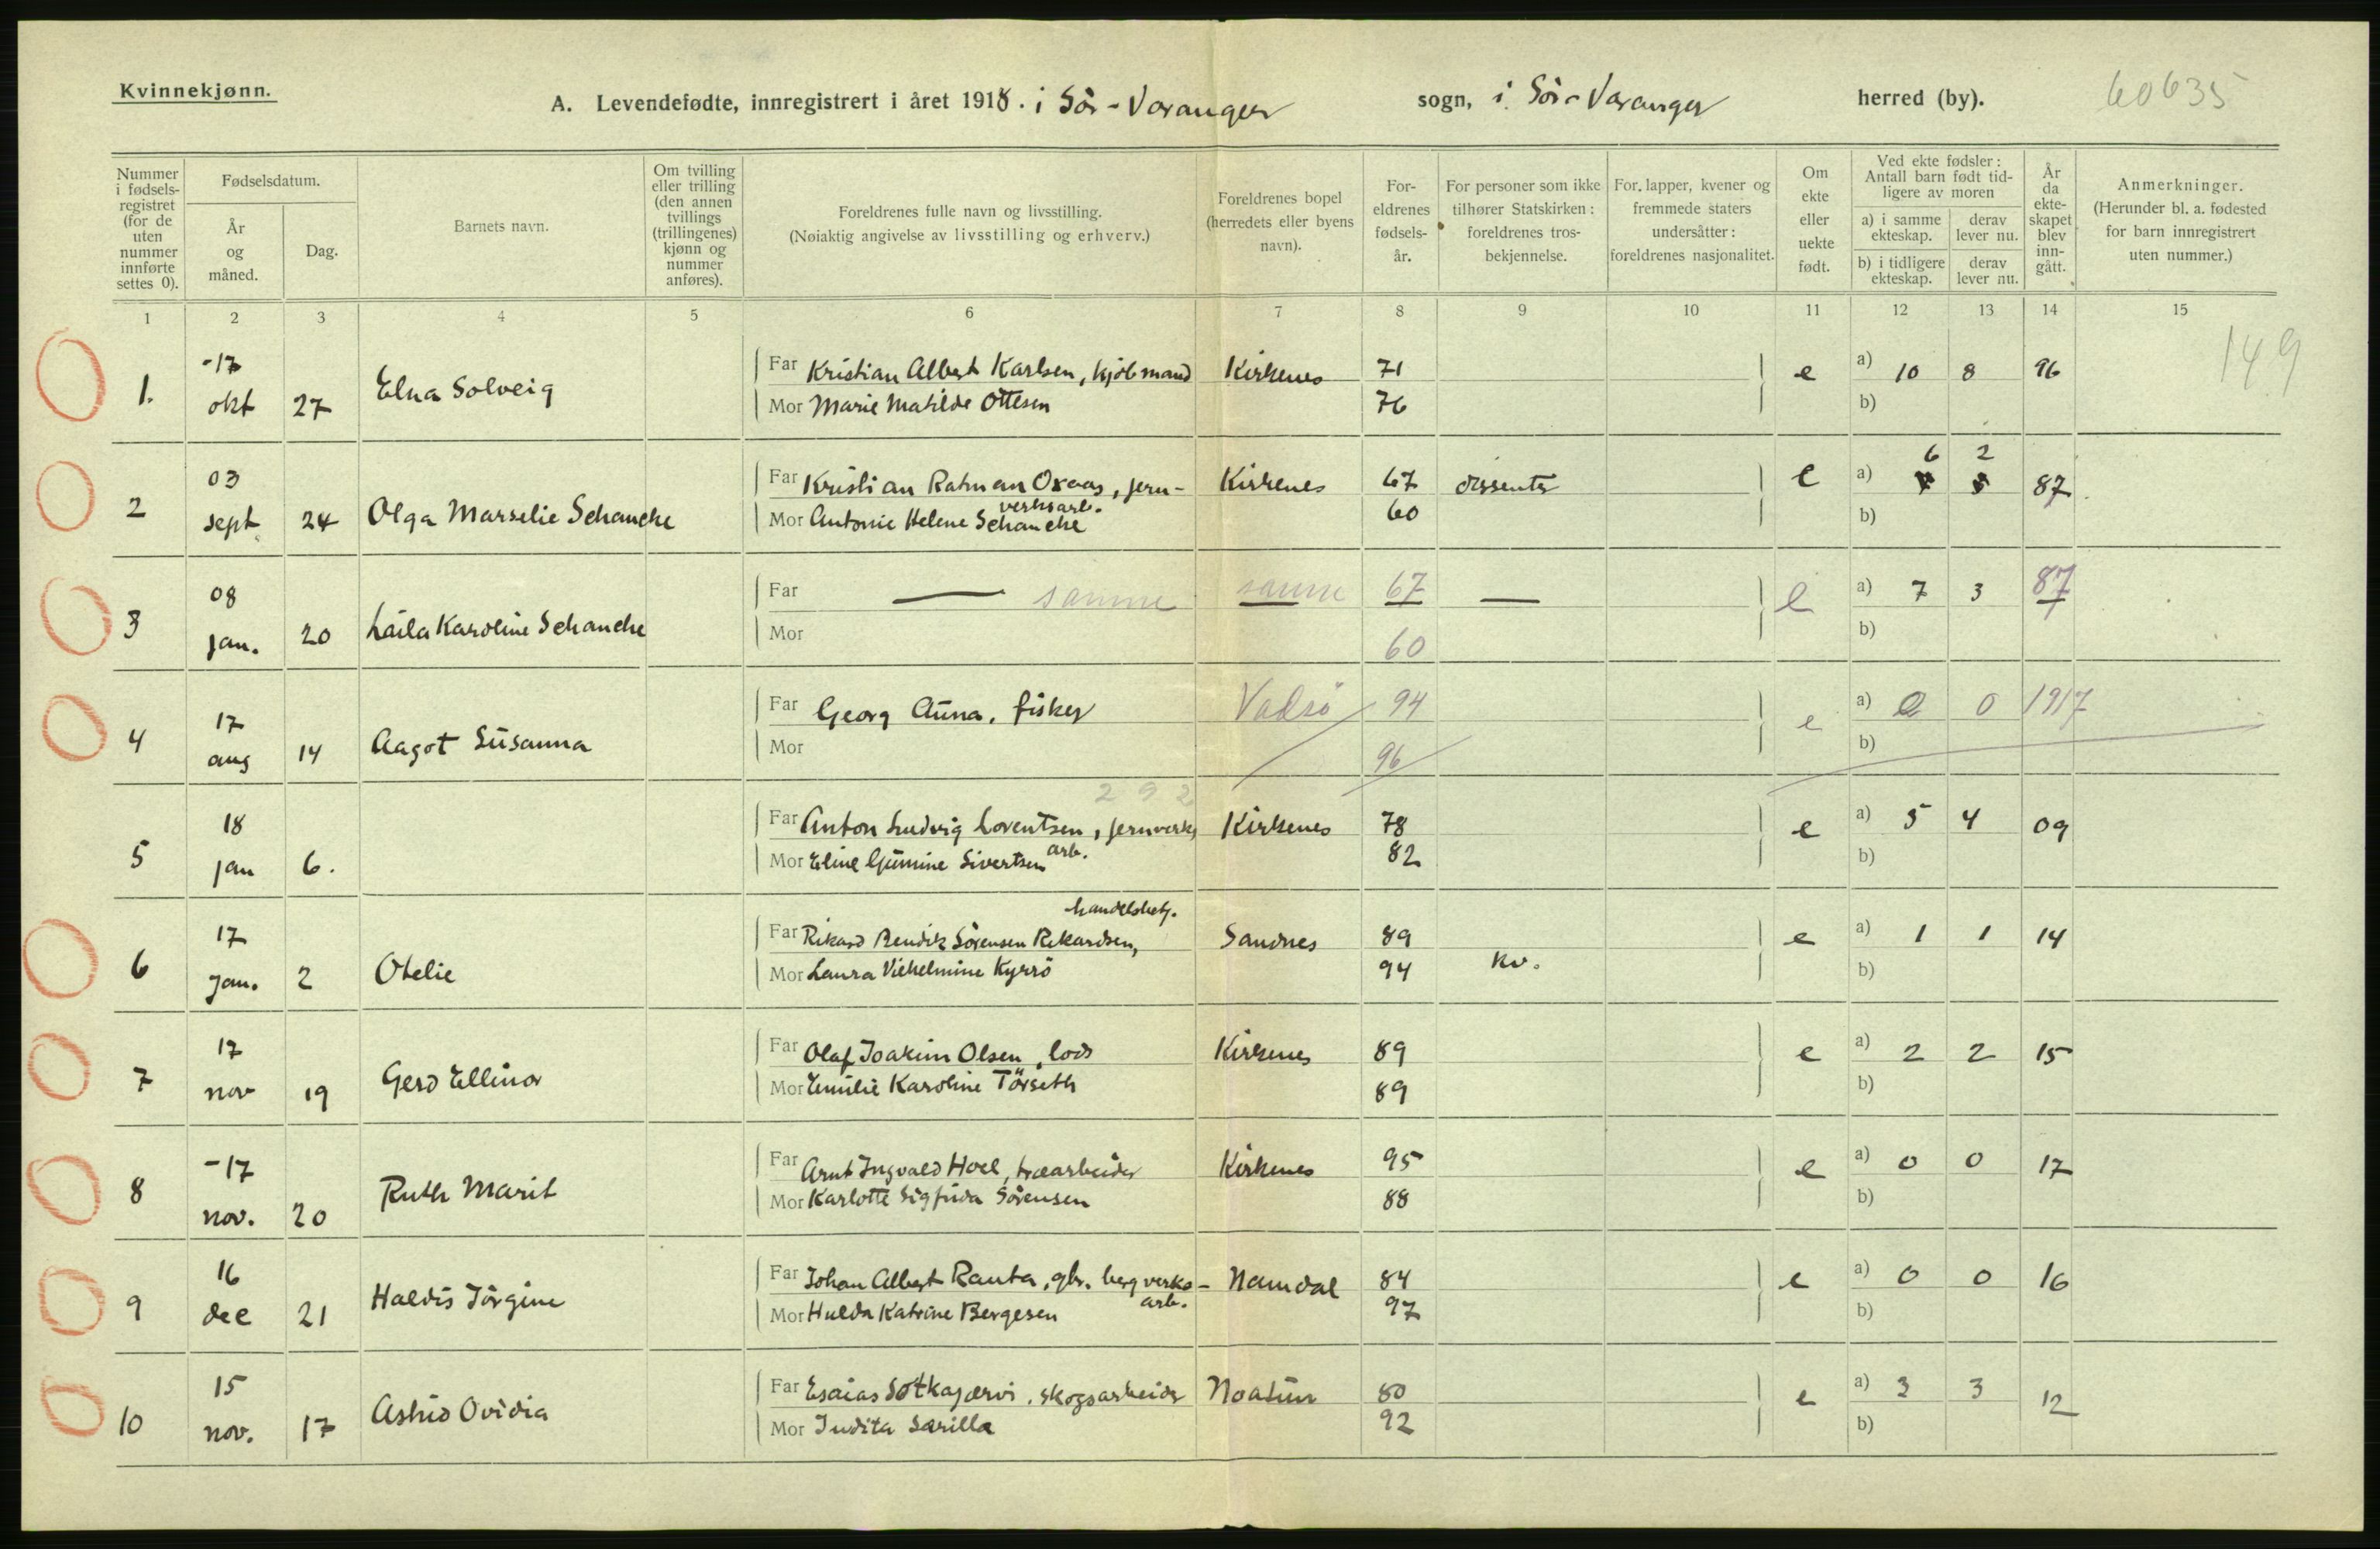 Kvinnekjønn.
A. Levendefødte, innregistrert i året 1918. i Sör-Varanger sogn, i Sör-Varanger herred (by). 60635
Nummer i fødsels-registret (for de uten nummer innførte settes 0).
Fødselsdatum.
År og måned.
Dag.
Barnets navn.
Om tvilling eller trilling (den annen tvillings (trillingenes) kjønn og nummer anføres).
Foreldrenes fulle navn og livsstilling.
(Nøiaktig angivelse av livsstilling og erhverv.)
Foreldrenes bopel (herredets eller byens navn).
For-eldrenes fødsels-år.
For personer som ikke tilhører Statskirken: foreldrenes tros-bekjennelse.
For lapper, kvener og fremmede staters undersåtter: foreldrenes nasjonalitet.
Om ekte eller uekte født.
Ved ekte fødsler: Antall barn født tid-ligere av moren
a) i samme ekteskap. derav lever nu.
b) i tidligere ekteskap. derav lever nu.
År da ekte-skapet blev inn-gått.
Anmerkninger.
(Herunder bl. a. fødested for barn innregistrert uten nummer.)
1 2 3 4 5 6 7 8 9 10 11 12 13 14 15
149
1. -17 okt 27 Elna Solveig
Far Kristian Albert Karlsen, kjöbmand Kirkenes 71 e a) 10 8 96
Mor Marie Matilde Ottesen 76 b)
2 03 sept. 24 Olga Marselie Schanche
6 2
Far Kristian Ratman Oxaas, jern- Kirkenes 67 dissenter e a) 87
verksarb.
Mor Antonie Helene Schanche 60 b)
3 08 jan. 20 Laila Karoline Schanche
Far — samme samme 67 — e a) 7 3 87
Mor 60 b)
4 17 aug 14 Aagot Susanna
Far Georg Auna, fisker Vadsö 94 e a) 0 0 1917
Mor 96 b)
292
5 18 jan 6.
Far Anton Ludvig Lorentsen, jernverks Kirkenes 78 e a) 5 4 09
arb.
Mor Eline Gunine Sivertsen 82 b)
6 17 jan. 2 Otelie
handelsbetj.
Far Rikard Bendik Sörensen Rikardsen, Sandnes 89 e a) 1 1 14
Mor Laura Vilhelmine Kyrrö 94 kv. b)
7 17 nov 19 Gerd Ellinor
Far Olaf Joakim Olsen, lods Kirkenes 89 e a) 2 2 15
Mor Emilie Karoline Törseth 89 b)
8 -17 nov. 20 Ruth Marit
Far Arnt Ingvald Hoel, træarbeider Kirkenes 95 e a) 0 0 17
Mor Karlotte Sigfrida Sörensen 88 b)
9 16 dec 21 Haldis Jörgine
Far Johan Albert Rauta, gbr. bergverks- Namdal 84 e a) 0 0 16
arb.
Mor Hulda Katrine Bergesen 97 b)
10 15 nov. 17 Astrid Ovidia
Far Esaias Sotkajærvi, skogsarbeider Noatun 80 e a) 3 3 12
Mor Indita Sarilla 92 b)